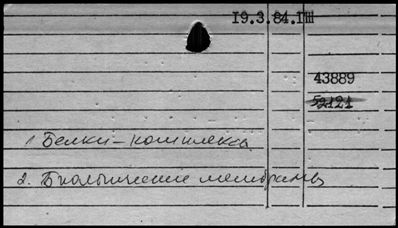 19.3.84.ПШ
43889
52121
1. Белки-комплексы
2. Биологические мембраны